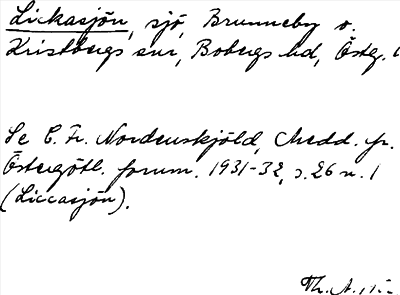 Lickasjön, sjö, Brunneby o.
Kristbergs snr, Bobergs hd, Östg.
Se C. Fr. Nordenskjöld, Medd. fr.
Östergötl. fornm. 1931-32, s. 26 n. 1
(Liccasjön).
Th. A.